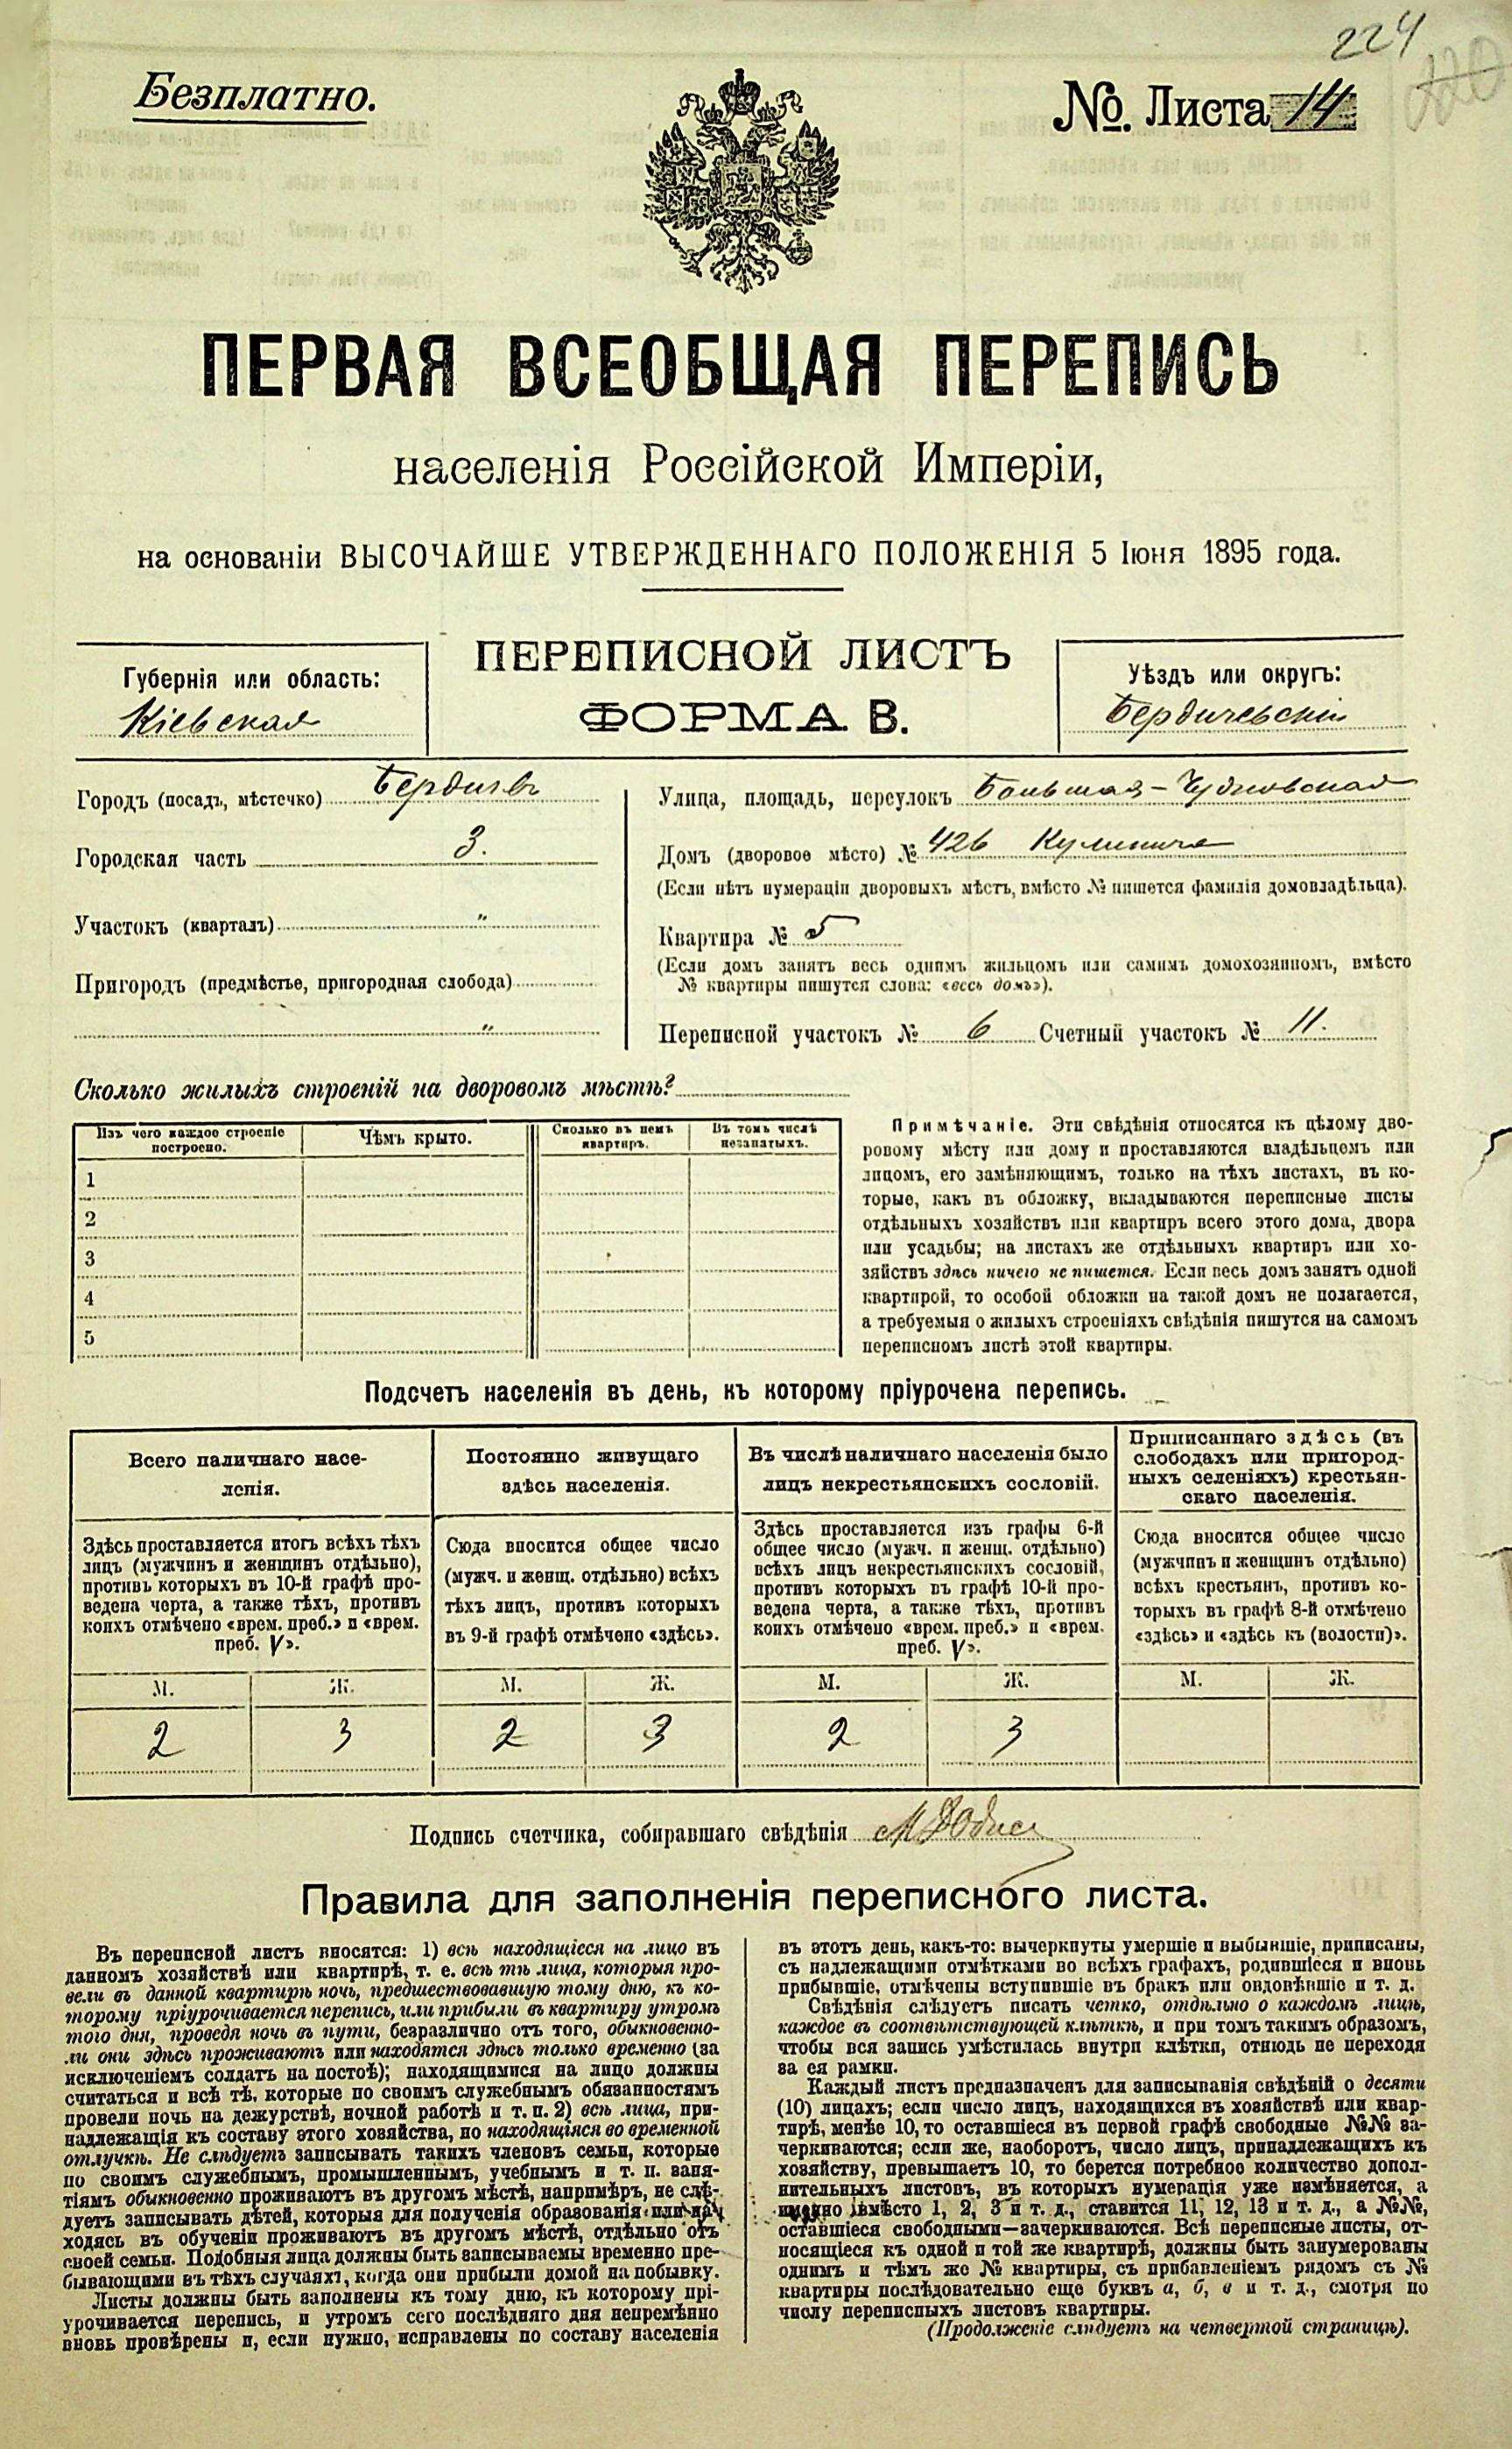 224
Безплатно.
№. Листа 14
ПЕРВАЯ ВСЕОБЩАЯ ПЕРЕПИСЬ
населенія Россійской Имперіи,
на основаніи ВЫСОЧАЙШЕ УТВЕРЖДЕННАГО ПОЛОЖЕНІЯ 5 Іюня 1895 года.
Губернія или область:
Кіевская
ПЕРЕПИСНОЙ ЛИСТЪ
ФОРМА В.
Уѣздъ или округъ:
Бердичевскій
Городъ (посадъ, мѣстечко) Бердичевъ
Городская часть 3.
Участокъ (кварталъ) "
Пригородъ (предмѣстье, пригородная слобода)
"
Улица, площадь, переулокъ Большая-Чудновская
Домъ (дворовое мѣсто) № 426
(Если нѣтъ нумераціи дворовыхъ мѣстъ, вмѣсто № пишется фамилія домовладѣльца).
Квартира № 5
(Если домъ занятъ весь однимъ жильцомъ или самимъ домохозяиномъ, вмѣсто
№ квартиры пишутся слова: «весь домъ»).
Переписной участокъ № 6 Счетный участокъ № 11.
Сколько жилыхъ строеній на дворовомъ мѣстѣ?
Изъ чего каждое строеніе
построено.
Чѣмъ крыто.
Сколько въ немъ
квартиръ.
Въ томъ числѣ
незанятыхъ.
1
2
3
4
5
Примѣчаніе. Эти свѣдѣнія относятся къ цѣлому дво-
ровому мѣсту или дому и проставляются владѣльцемъ или
лицомъ, его замѣняющимъ, только на тѣхъ листахъ, въ ко-
торые, какъ въ обложку, вкладываются переписные листы
отдѣльныхъ хозяйствъ или квартиръ всего этого дома, двора
или усадьбы; на листахъ же отдѣльныхъ квартиръ или хо-
зяйствъ здѣсь ничего не пишется. Если весь домъ занятъ одной
квартирой, то особой обложки на такой домъ не полагается,
а требуемыя о жилыхъ строеніяхъ свѣдѣнія пишутся на самомъ
переписномъ листѣ этой квартиры.
Подсчетъ населенія въ день, къ которому пріурочена перепись.
Всего наличнаго насе-
ленія.
Здѣсь проставляется итогъ всѣхъ тѣхъ
лицъ (мужчинъ и женщинъ отдѣльно),
противъ которыхъ въ 10-й графѣ про-
ведена черта, а также тѣхъ, противъ
коихъ отмѣчено «врем. преб.» и «врем.
преб. V».
М. Ж.
2 3
Постоянно живущаго
здѣсь населенія.
Сюда вносится общее число
(мужч. и женщ. отдѣльно) всѣхъ
тѣхъ лицъ, противъ которыхъ
въ 9-й графѣ отмѣчено «здѣсь».
М. Ж.
2 3
Въ числѣ наличнаго населенія было
лицъ некрестьянскихъ сословій.
Здѣсь проставляется изъ графы 6-й
общее число (мужч. и женщ. отдѣльно)
всѣхъ лицъ некрестьянскихъ сословій,
противъ которыхъ въ графѣ 10-й про-
ведена черта, а также тѣхъ, противъ
коихъ отмѣчено «врем. преб.» и «врем.
преб. V».
М. Ж.
2 3
Приписаннаго здѣсь (въ
слободахъ или пригород-
ныхъ селеніяхъ) крестьян-
скаго населенія.
Сюда вносится общее число
(мужчинъ и женщинъ отдѣльно)
всѣхъ крестьянъ, противъ ко-
торыхъ въ графѣ 8-й отмѣчено
«здѣсь» и «здѣсь къ (волости)».
М. Ж.
Подпись счетчика, собиравшаго свѣдѣнія
Правила для заполненія переписного листа.
Въ переписной листъ вносятся: 1) всѣ находящіеся на лицо въ
данномъ хозяйствѣ или квартирѣ, т. е. всѣ тѣ лица, которыя про-
вели въ данной квартирѣ ночь, предшествовавшую тому дню, къ ко-
торому пріурочивается перепись, или прибыли въ квартиру утромъ
того дня, проведя ночь въ пути, безразлично отъ того, обыкновенно-
ли они здѣсь проживаютъ или находятся здѣсь только временно (за
исключеніемъ солдатъ на постоѣ); находящимися на лицо должны
считаться и всѣ тѣ, которые по своимъ служебнымъ обязанностямъ
провели ночь на дежурствѣ, ночной работѣ и т. п. 2) всѣ лица, при-
надлежащія къ составу этого хозяйства, но находящіяся во временной
отлучкѣ. Не слѣдуетъ записывать такихъ членовъ семьи, которые
по своимъ служебнымъ, промышленнымъ, учебнымъ и т. п. заня-
тіямъ обыкновенно проживаютъ въ другомъ мѣстѣ, напримѣръ, не слѣ-
дуетъ записывать дѣтей, которыя для полученія образованія или на-
ходясь въ обученіи проживаютъ въ другомъ мѣстѣ, отдѣльно отъ
своей семьи. Подобныя лица должны быть записываемы временно пре-
бывающими въ тѣхъ случаяхъ, когда они прибыли домой на побывку.
Листы должны быть заполнены къ тому дню, къ которому прі-
урочивается перепись, и утромъ сего послѣдняго дня непремѣнно
вновь провѣрены и, если нужно, исправлены по составу населенія
въ этотъ день, какъ-то: вычеркнуты умершіе и выбывшіе, приписаны,
съ надлежащими отмѣтками во всѣхъ графахъ, родившіеся и вновь
прибывшіе, отмѣчены вступившіе въ бракъ или овдовѣвшіе и т. д.
Свѣдѣнія слѣдуетъ писать четко, отдѣльно о каждомъ лицѣ,
каждое въ соотвѣтствующей клѣткѣ, и при томъ такимъ образомъ,
чтобы вся запись умѣстилась внутри клѣтки, отнюдь не переходя
за ея рамки.
Каждый листъ предназначенъ для записыванія свѣдѣній о десяти
(10) лицахъ; если число лицъ, находящихся въ хозяйствѣ или квар-
тирѣ, менѣе 10, то оставшіеся въ первой графѣ свободные №№ за-
черкиваются; если же, наоборотъ, число лицъ, принадлежащихъ къ
хозяйству, превышаетъ 10, то берется потребное количество допол-
нительныхъ листовъ, въ которыхъ нумерація уже измѣняется, а
именно вмѣсто 1, 2, 3 и т. д., ставится 11, 12, 13 и т. д., а №№,
оставшіеся свободными—зачеркиваются. Всѣ переписные листы, от-
носящіеся къ одной и той же квартирѣ, должны быть занумерованы
однимъ и тѣмъ же № квартиры, съ прибавленіемъ рядомъ съ №
квартиры послѣдовательно еще буквъ а, б, в и т. д., смотря по
числу переписныхъ листовъ квартиры.
(Продолженіе слѣдуетъ на четвертой страницѣ).